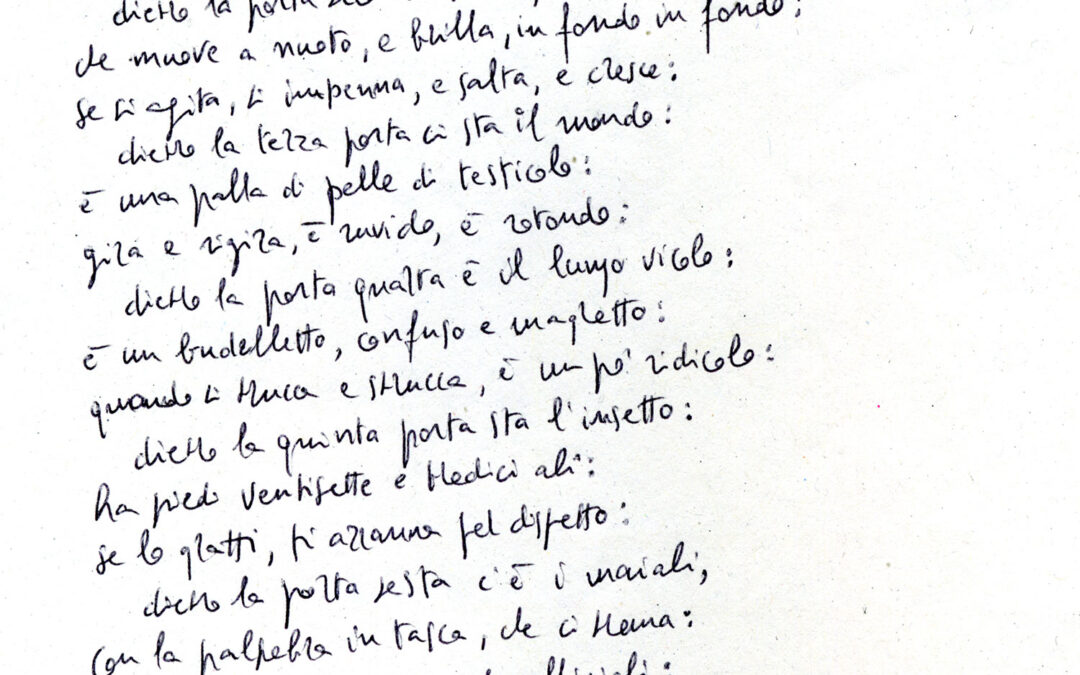 dietro la porta
che muove a nuoto, e brilla, in fondo in fondo:
se si agita, si impenna, e salta, e cresce:
dietro la terza porta ci sta il mondo:
è una palla di pelle di testicolo:
gira e rigira, è ruvido, è rotondo:
dietro la porta quarta è il lungo vicolo:
è un budelletto, confuso e magretto:
quando si trucca e strucca, è un po' ridicolo:
dietro la quinta porta sta l'insetto:
ha piedi ventisette e tredici ali:
se lo gratti, ti azzanna pel dispetto:
dietro la porta sesta c'è i maiali,
con la palpebra in tasca, che ci trema: